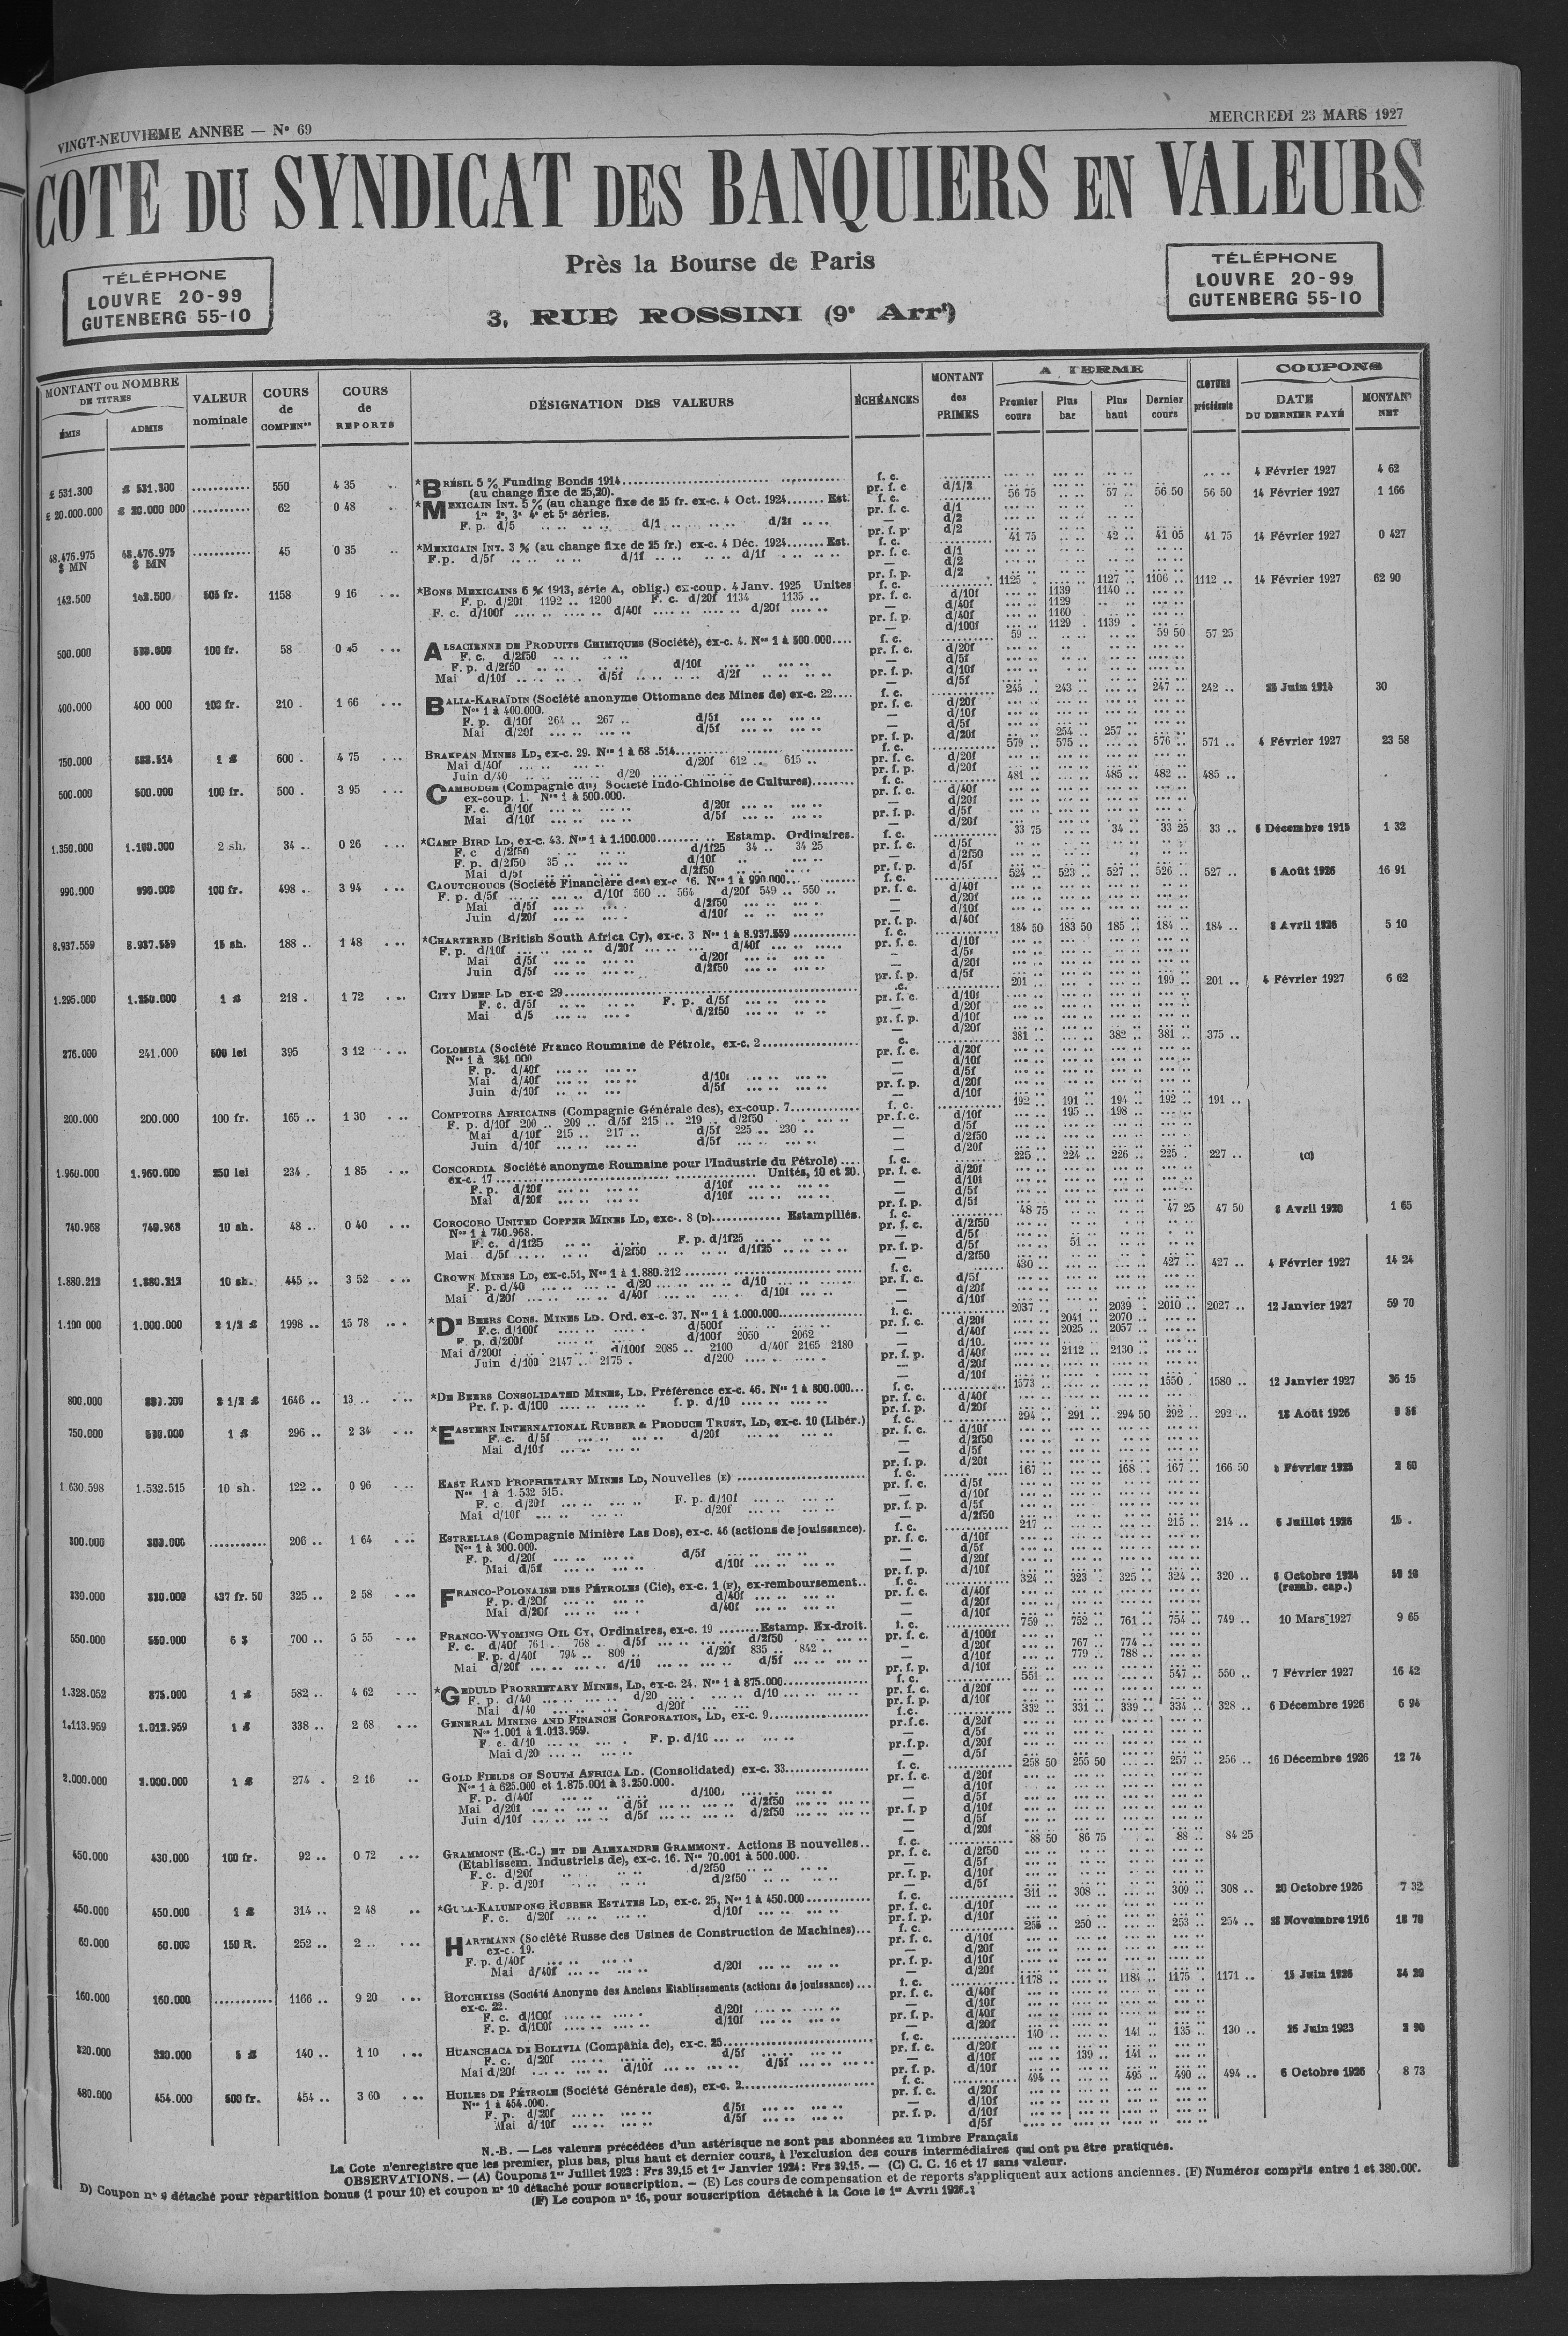 VINGT-NEUVIEME ANNEE — N° 69
MERCREDI 23 MARS 1927
COTE DU SYNDICAT DES BANQUIERS EN VALEURS
Près la Bourse de Paris
3, RUE ROSSINI (9e Arrt)
TÉLÉPHONE
LOUVRE 20-99
GUTENBERG 55-10
TÉLÉPHONE
LOUVRE 20-99
GUTENBERG 55-10
MONTANT ou NOMBRE DE TITRES
ÉMIS
ADMIS
VALEUR nominale
COURS de COMPENon
COURS de REPORTS
DÉSIGNATION DES VALEURS
ÉCHÉANCES
MONTANT des PRIMES
A TERME
Premier cours
Plus bas
Plus haut
Dernier cours
CLOTURE précédente
COUPONS
DATE DU DERNIER PAYÉ
MONTANT NET
£ 531.300 £ 531.300 550 4 35 *BRÉSIL 5 % Funding Bonds 1914 f. c. 4 Février 1927 4 62
(au change fixe de 25,20). pr. f. c d/1/2
£ 20.000.000 £ 20.000 000 62 0 48 *MEXICAIN INT. 5 % (au change fixe de 25 fr. ex-c. 4 Oct. 1924 Est. f. c. 56 75 57 56 50 56 50 14 Février 1927 1 166
1re 2e, 3e 4e et 5e séries. pr. f. c. d/1
F. p. d/5 d/1 d/2f — d/2
pr. f. p. d/2
48.476.975 $ MN 48.476.975 $ MN 45 0 35 *MEXICAIN INT. 3 % (au change fixe de 25 fr.) ex-c. 4 Déc. 1924 Est. f. c. 41 75 42 41 05 41 75 14 Février 1927 0 427
F.p. d/5f d/1f d/1f pr. f. c. d/1
— d/2
pr. f. p. d/2
142.500 142.500 505 fr. 1158 9 16 *BONS MEXICAINS 6 % 1913, série A, oblig.) ex-coup. 4 Janv. 1925 Unites f. c. 1125 1127 1106 1112 14 Février 1927 62 90
F. p. d/20f 1192 1200 F. c. d/20f 1134 1135 pr. f. c. d/10f 1139 1140
F. c. d/100f d/40f d/20f — d/40f 1129
pr. f. p. d/40f 1160
— d/100f 1129 1139
500.000 500.000 100 fr. 58 0 45 ALSACIENNE DE PRODUITS CHIMIQUES (Société), ex-c. 4. Nos 1 à 500.000 f. c. 59 59 50 57 25
F. c. d/2f50 pr. f. c. d/20f
F. p. d/2f50 d/10f — d/5f
Mai d/10f d/5f d/2f pr. f. p. d/10f
— d/5f
400.000 400 000 100 fr. 210 1 66 BALIA-KARAÏDIN (Société anonyme Ottomane des Mines de) ex-c. 22 f. c. 245 243 247 242 25 Juin 1914 30
Nos 1 à 400.000. pr. f. c. d/20f
F. p. d/10f 264 267 d/5f — d/10f
Mai d/20f d/5f — d/5f
pr. f. p. d/20f 254 257
750.000 1 £ 600 4 75 BRAKPAN MINES LD, ex-c. 29. f. c. 579 575 576 571 4 Février 1927 23 58
Mai d/40f d/20f 612 615 pr. f. c. d/20f
Juin d/40 d/20 pr. f. p. d/20f
500.000 500.000 100 fr. 500 3 95 CAMBODGE (Compagnie du) Societé Indo-Chinoise de Cultures) f. c. 481 485 482 485
ex-coup. 1. Nos 1 à 500.000. pr. f. c. d/40f
F. c. d/10f d/20f — d/20f
Mai d/10f d/5f pr. f. p. d/5f
— d/20f
1.350.000 1.100.000 2 sh. 34 0 26 *CAMP BIRD LD, ex-c. 43. Nos 1 à 1.100.000 Estamp. Ordinaires. f. c. 33 75 34 33 25 33 6 Décembre 1915 1 32
F. c d/2f50 d/1f25 34 34 25 pr. f. c. d/5f
F. p. d/2f50 35 d/10f — d/2f50
Mai d/5f d/2f50 pr. f. p. d/5f
990.000 990.000 100 fr. 498 3 94 CAOUTCHOUCS (Société Financière des) ex-c 16. Nos 1 à 990.000 f. c. 524 523 527 526 527 6 Août 1926 16 91
F. p. d/5f d/10f 560 564 d/20f 549 550 pr. f. c. d/40f
Mai d/5f d/2f50 — d/20f
Juin d/20f d/10f — d/10f
pr. f. p. d/40f
8.937.559 8.937.559 15 sh. 188 1 48 *CHARTERED (British South Africa Cy), ex-c. 3 Nos 1 à 8.937.559 f. c. 184 50 183 50 185 184 184 8 Avril 1926 5 10
F. p. d/10f d/20f d/40f pr. f. c. d/10f
Mai d/5f d/20f — d/5f
Juin d/5f d/2f50 — d/20f
pr. f. p. d/5f
1.295.000 1.250.000 1 £ 218 1 72 CITY DEEP LD ex-c 29 201 199 201 4 Février 1927 6 62
F. c. d/5f F. p. d/5f pr. f. c. d/10f
Mai d/5 d/2f50 — d/20f
pr. f. p. d/10f
— d/20f
276.000 241.000 500 lei 395 3 12 COLOMBIA (Société Franco Roumaine de Pétrole, ex-c. 2 381 382 381 375
Nos 1 à 241 000 pr. f. c. d/20f
F. p. d/40f — d/10f
Mai d/40f d/10f — d/5f
Juin d/10f d/5f pr. f. p. d/20f
— d/10f
200.000 200.000 100 fr. 165 1 30 COMPTOIRS AFRICAINS (Compagnie Générale des), ex-coup. 7 f. c. 192 191 194 192 191
F. p. d/10f 200 209 d/5f 215 219 d/2f50 pr.f.c. d/10f 195 198
Mai d/10f 215 217 d/5f 225 230 — d/5f
Juin d/10f d/5f — d/2f50
— d/20f
1.960.000 1.960.000 250 lei 234 1 85 CONCORDIA Société anonyme Roumaine pour l'Industrie du Pétrole) f. c. 225 224 226 225 227 (C)
ex-c. 17 Unités, 10 et 20. pr. f. c. d/20f
F. p. d/20f d/10f — d/10f
Mai d/20f d/10f — d/5f
pr. f. p. d/5f
740.968 740.968 10 sh. 48 0 40 COROCORO UNITED COPPER MINES LD, exc-. 8 (D) Estampillés. f. c. 48 75 47 25 47 50 8 Avril 1920 1 65
Nos 1 à 740.968. pr. f. c. d/2f50
F. c. d/1f25 F. p. d/1f25 — d/5f
Mai d/5f d/2f50 d/1f25 pr. f. p. d/5f 51
— d/2f50
1.880.212 1.880.212 10 sh. 445 3 52 CROWN MINES LD, ex-c.51, Nos 1 à 1.880.212 f. c. 430 427 427 4 Février 1927 14 24
F. p. d/40 d/20 d/10 pr. f. c. d/5f
Mai d/20f d/40f d/10f — d/20f
— d/10f
1.100 000 1.000.000 2 1/2 £ 1998 15 78 *DE BEERS CONS. MINES LD. Ord. ex-c. 37. Nos 1 à 1.000.000 f. c. 2037 2039 2010 2027 12 Janvier 1927 59 70
F.c. d/100f d/500f pr. f. c. d/20f 2041 2070
F. p. d/200f d/100f 2050 2062 — d/40f 2025 2057
Mai d/200f d/100f 2085 2100 d/40f 2165 2180 — d/10
Juin d/100 2147 2175 d/200 pr. f. p. d/40f 2112 2130
— d/20f
— d/10f
800.000 2 1/2 £ 1646 13 *DE BEERS CONSOLIDATED MINES, LD. Préférence ex-c. 46. Nos 1 à 800.000 f. c. 1573 1550 1580 12 Janvier 1927 36 15
Pr. f. p. d/100 f. p. d/10 pr. f. c. d/40f
pr. f. p. d/20f
750.000 1 £ 296 2 34 *EASTERN INTERNATIONAL RUBBER & PRODUCE TRUST, LD, ex-c. 10 (Libér.) f. c. 294 291 294 50 292 292 18 Août 1926
F. c. d/5f d/20f pr. f. c. d/10f
Mai d/10f — d/2f50
— d/5f
pr. f. p. d/20f
1 630.598 1.532.515 10 sh. 122 0 96 EAST RAND PROPRIETARY MINES LD, Nouvelles (E) f. c. 167 168 167 166 50 Février 1925 2 60
Nos 1 à 1.532 515. pr. f. c. d/5f
F. c. d/20f F. p. d/10f — d/10f
Mai d/10f d/20f pr. f. p. d/5f
— d/2f50
300.000 300.000 206 1 64 ESTRELLAS (Compagnie Minière Las Dos), ex-c. 46 (actions de jouissance). f. c. 217 215 214 6 Juillet 1926 15
Nos 1 à 300.000. pr. f. c. d/10f
F. p. d/20f d/5f — d/5f
Mai d/5f d/10f — d/20f
pr. f. p. d/10f
330.000 330.000 437 fr. 50 325 2 58 FRANCO-POLONAISE DES PÉTROLES (Cie), ex-c. 1 (F), ex-remboursement f. c. 324 323 325 324 320 Octobre 1924 (remb. cap.) 59 10
F. p. d/20f d/40f pr. f. c. d/40f
Mai d/20f d/40f — d/20f
— d/10f
550.000 550.000 6 $ 700 5 55 FRANCO-WYOMING OIL CY, Ordinaires, ex-c. 19 Estamp. Ex-droit. f. c. 759 752 761 754 749 10 Mars 1927 9 65
F. c. d/40f 761 768 d/5f d/2f50 pr. f. c. d/100f
F. p. d/40f 794 809 d/20f 835 842 — d/20f 767 774
Mai d/20f d/10 d/5f — d/10f 779 788
pr. f. p. d/10f
1.328.052 875.000 1 £ 582 4 62 *GEDULD PROPRIETARY MINES, LD, ex-c. 24. Nos 1 à 875.000 f. c. 551 547 550 7 Février 1927 16 42
F. p. d/40 d/20 d/10 pr. f. c. d/20f
Mai d/40 d/20f pr. f. p. d/10f
1.113.959 1.013.959 1 £ 338 2 68 GENERAL MINING AND FINANCE CORPORATION, LD, ex-c. 9 f.c. 332 331 339 334 328 6 Décembre 1926 6 94
Nos 1.001 à 1.013.959. pr.f.c. d/20f
F. c. d/10 F. p. d/10 — d/5f
Mai d/20 pr.f.p. d/20f
— d/5f
2.000.000 2.000.000 1 £ 274 2 16 GOLD FIELDS OF SOUTH AFRICA LD. (Consolidated) ex-c. 33 f. c. 258 50 255 50 257 256 16 Décembre 1926 12 74
Nos 1 à 625.000 et 1.875.001 à 3.250.000. pr. f. c. d/20f
F. p. d/40f d/100 — d/10f
Mai d/20f d/5f d/2f50 — d/5f
Juin d/10f d/5f d/2f50 pr. f. p d/10f
— d/5f
— d/20f
450.000 430.000 100 fr. 92 0 72 GRAMMONT (E.-C.) ET DE ALEXANDRE GRAMMONT. Actions B nouvelles f. c. 88 50 86 75 88 84 25
(Etablissem. Industriels de), ex-c. 16. Nos 70.001 à 500.000. pr. f. c. d/2f50
F. c. d/20f d/2f50 — d/5f
F. p. d/20f d/2f50 pr. f. p. d/10f
— d/5f
450.000 450.000 1 £ 314 2 48 *GULA-KALUMPONG RUBBER ESTATES LD, ex-c. 25, Nos 1 à 450.000 f. c. 311 308 309 308 20 Octobre 1926 7 32
F. c. d/20f d/10f pr. f. c. d/10f
pr. f. p. d/10f
60.000 60.000 150 R. 252 2 HARTMANN (Société Russe des Usines de Construction de Machines) f. c. 255 250 253 254 Novembre 1916 18 70
ex-c. 19. pr. f. c. d/10f
F. p. d/40f — d/20f
Mai d/40f d/20f pr. f. p. d/10f
— d/20f
160.000 160.000 1166 9 20 HOTCHKISS (Société Anonyme des Anciens Etablissements (actions de jouissance) f. c. 1178 1184 1175 1171 15 Juin 1926 34 20
ex-c. 22. pr. f. c. d/40f
F. c. d/100f d/20f — d/10f
F. p. d/100f d/10f pr. f. p. d/40f
— d/20f
320.000 320.000 5 £ 140 1 10 HUANCHACA DE BOLIVIA (Compania de), ex-c. 25 f. c. 140 141 135 130 26 Juin 1923 2 90
F. c. d/20f d/5f pr. f. c. d/20f
Mai d/20f d/10f d/5f — d/10f 139 141
pr. f. p. d/10f
480.000 454.000 500 fr. 454 3 60 HUILES DE PÉTROLE (Société Générale des), ex-c. 2 f. c. 494 495 490 494 6 Octobre 1926 8 73
Nos 1 à 454.000. pr. f. c. d/20f
F. p. d/20f d/5f — d/10f
Mai d/10f d/5f pr. f. p. d/10f
d/5f
N.-B. — Les valeurs précédées d'un astérisque ne sont pas abonnées au Timbre Français
La Cote n'enregistre que les premier, plus bas, plus haut et dernier cours, à l'exclusion des cours intermédiaires qui ont pu être pratiqués.
OBSERVATIONS. — (A) Coupons 1er Juillet 1923 : Frs 39,15 et 1er Janvier 1924 : Frs 39.15. — (C) C. C. 16 et 17 sans valeur.
D) Coupon n° 9 détaché pour répartition bonus (1 pour 10) et coupon n° 10 détaché pour souscription. — (E) Les cours de compensation et de reports s'appliquent aux actions anciennes. (F) Numéros compris entre 1 et 380.000.
(F) Le coupon n° 16, pour souscription détaché à la Cote le 1er Avril 1926.